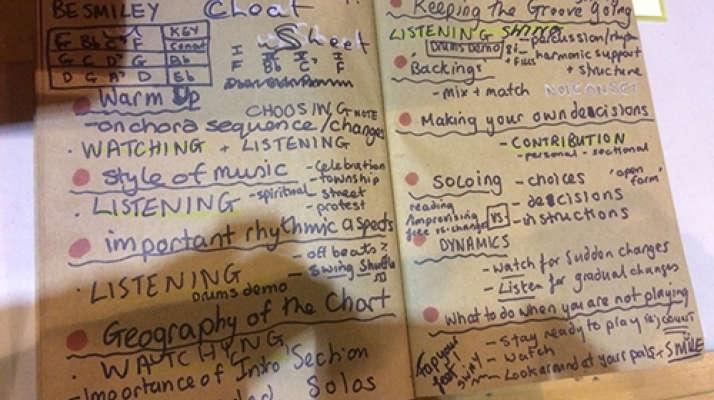 BE SMILEY Cheat Sheet
F Bb C F KEY Concert
G C D G Bb
D G A D Eb
I IV V I
F Bb C F
Warm Up
CHOOSING NOTE
- on chord sequence/changes
· WATCHING + LISTENING
Style of music
- celebration
- township
- spiritual - street
- protest
· LISTENING
important rhythmic aspects
- off beats
- Swing Shuffle
· LISTENING
Drums demo
Geography of the Chart
· WATCHING
- Importance of 'Intro' Section
Solos
Keeping The Groove going
LISTENING
Drums Demo
- percussion/rhythm
+ Fills
harmonic support
+ structure
'Backings'
- mix + match
Making your own decisions
- CONTRIBUTION
- personal - sectional
Soloing
- choices
'open form'
- decisions
VS
- instructions
reading
/improvising
free vs. changes
DYNAMICS
- watch for Sudden changes
- Listen for gradual changes
What to do when you are not playing
- Stay ready to play
COUNT
Tap your foot!
sway
- watch
- Look around at your pals + SMILE